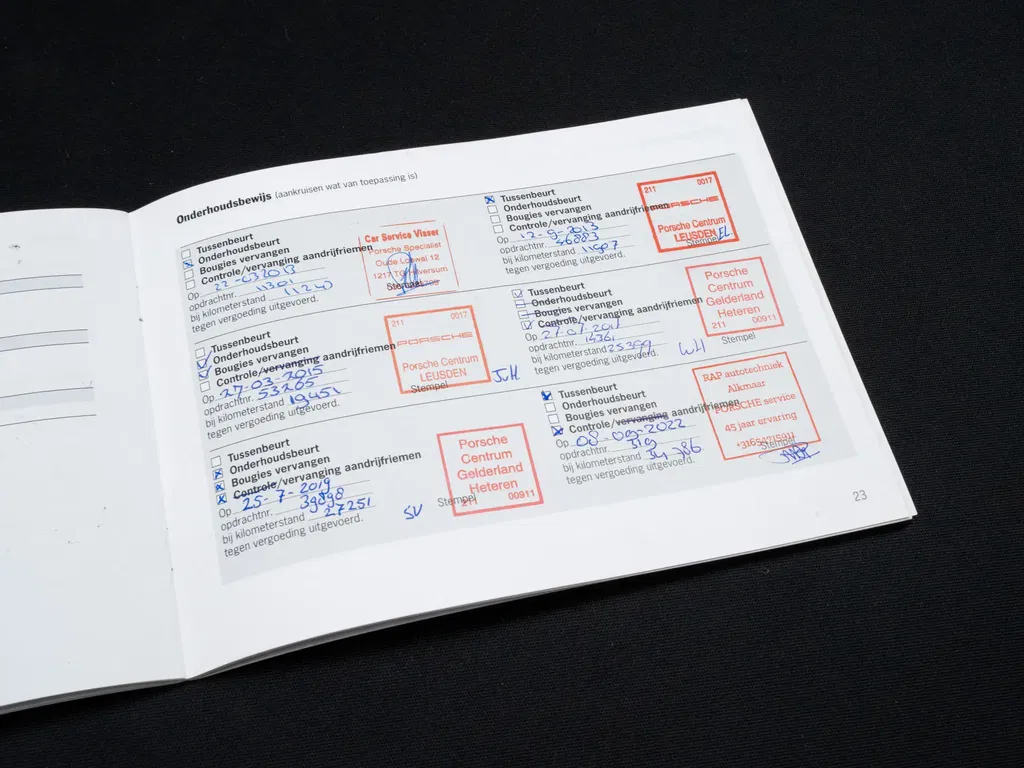 Onderhoudsbewijs (aankruisen wat van toepassing is)
Tussenbeurt
Onderhoudsbeurt
Bougies vervangen
Controle/vervanging aandrijfriemen
Op 22-03 2013
opdrachtnr. 11301
bij kilometerstand 11240
tegen vergoeding uitgevoerd.
Car Service Visser
Porsche Specialist
Oude Loswal 12
1217 Hilversum
Stempel
Tussenbeurt
Onderhoudsbeurt
Bougies vervangen
Controle/vervanging aandrijfriemen
Op 12-9-2013
opdrachtnr. 46883
bij kilometerstand 11907
tegen vergoeding uitgevoerd.
211 0017
PORSCHE
Porsche Centrum
LEUSDEN
Stempel
Tussenbeurt
Onderhoudsbeurt
Bougies vervangen
Controle/vervanging aandrijfriemen
Op 27-03-2015
opdrachtnr. 53265
bij kilometerstand 19451
tegen vergoeding uitgevoerd.
211 0017
PORSCHE
Porsche Centrum
LEUSDEN
Stempel
Tussenbeurt
Onderhoudsbeurt
Bougies vervangen
Controle/vervanging aandrijfriemen
Op
opdrachtnr.
bij kilometerstand 25399
tegen vergoeding uitgevoerd.
WH
Porsche
Centrum
Gelderland
Heteren
211 00911
Stempel
Tussenbeurt
Onderhoudsbeurt
Bougies vervangen
Controle/vervanging aandrijfriemen
Op 25-7-2019
opdrachtnr. 39898
bij kilometerstand 27251
tegen vergoeding uitgevoerd.
SV
Porsche
Centrum
Gelderland
Heteren
211 00911
Stempel
Tussenbeurt
Onderhoudsbeurt
Bougies vervangen
Controle/vervanging aandrijfriemen
Op 08-09-2022
opdrachtnr. 319
bij kilometerstand 34 786
tegen vergoeding uitgevoerd.
RAP autotechniek
Alkmaar
PORSCHE service
45 jaar ervaring
Stempel
23